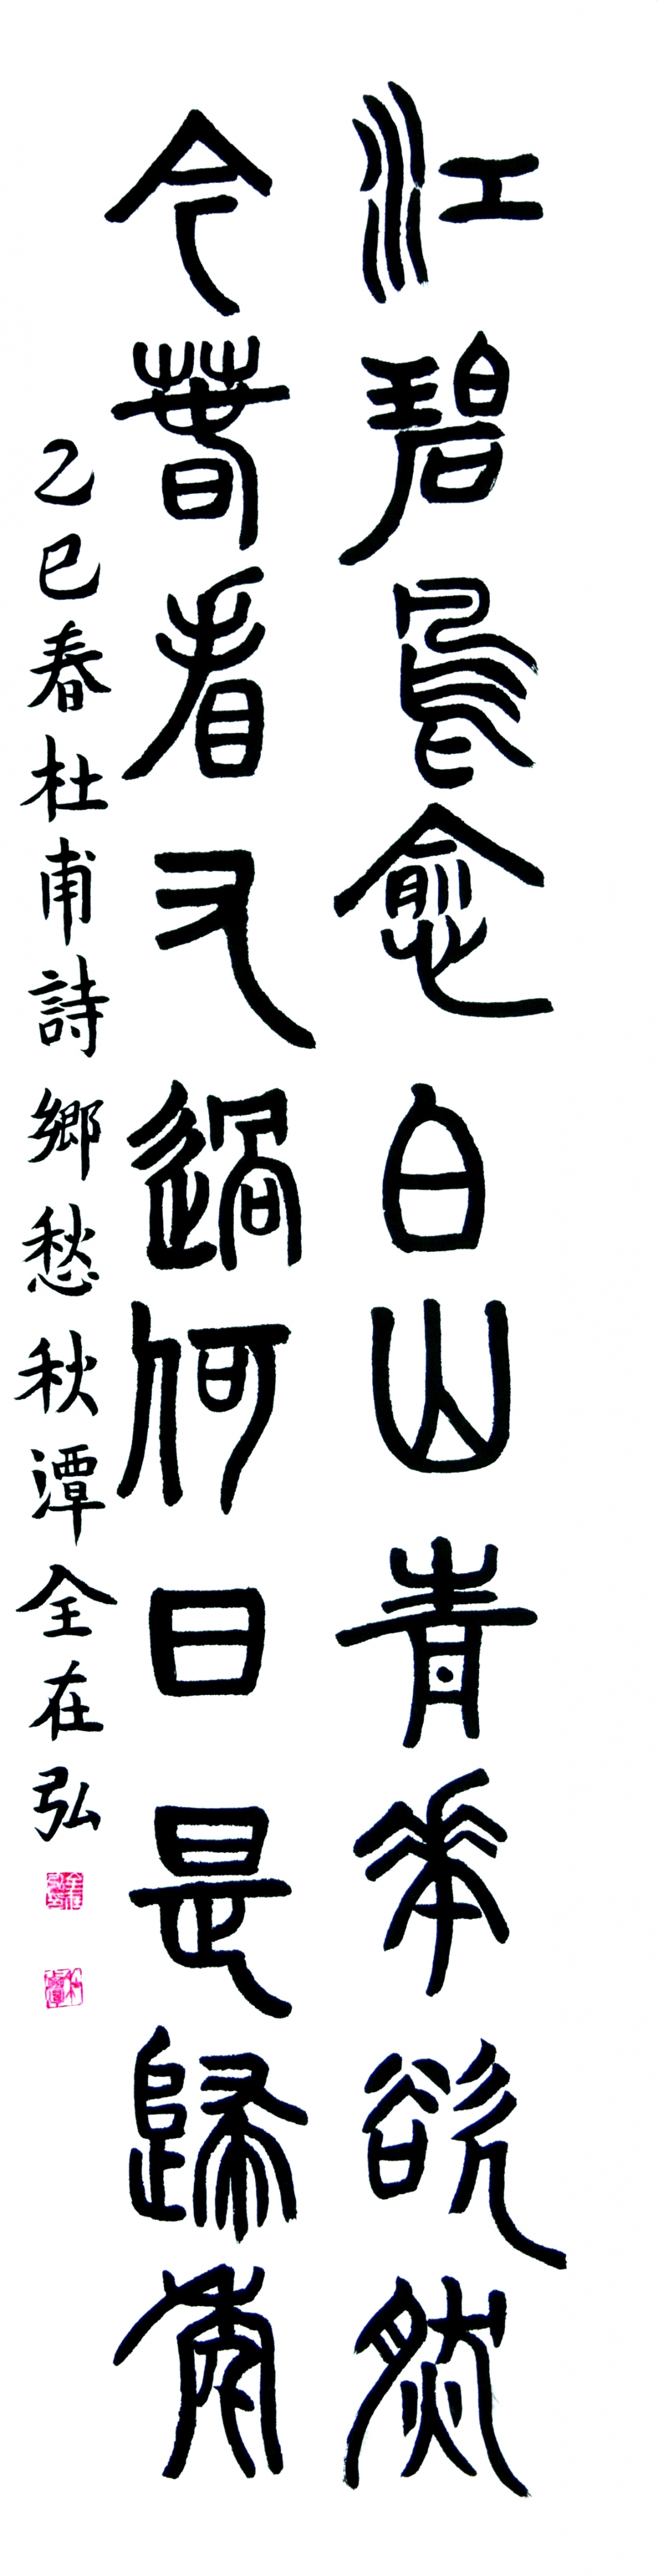 江碧鳥愈白山靑華欲然
今春看又過何日是歸年
乙巳春杜甫詩鄉愁秋潭全在弘